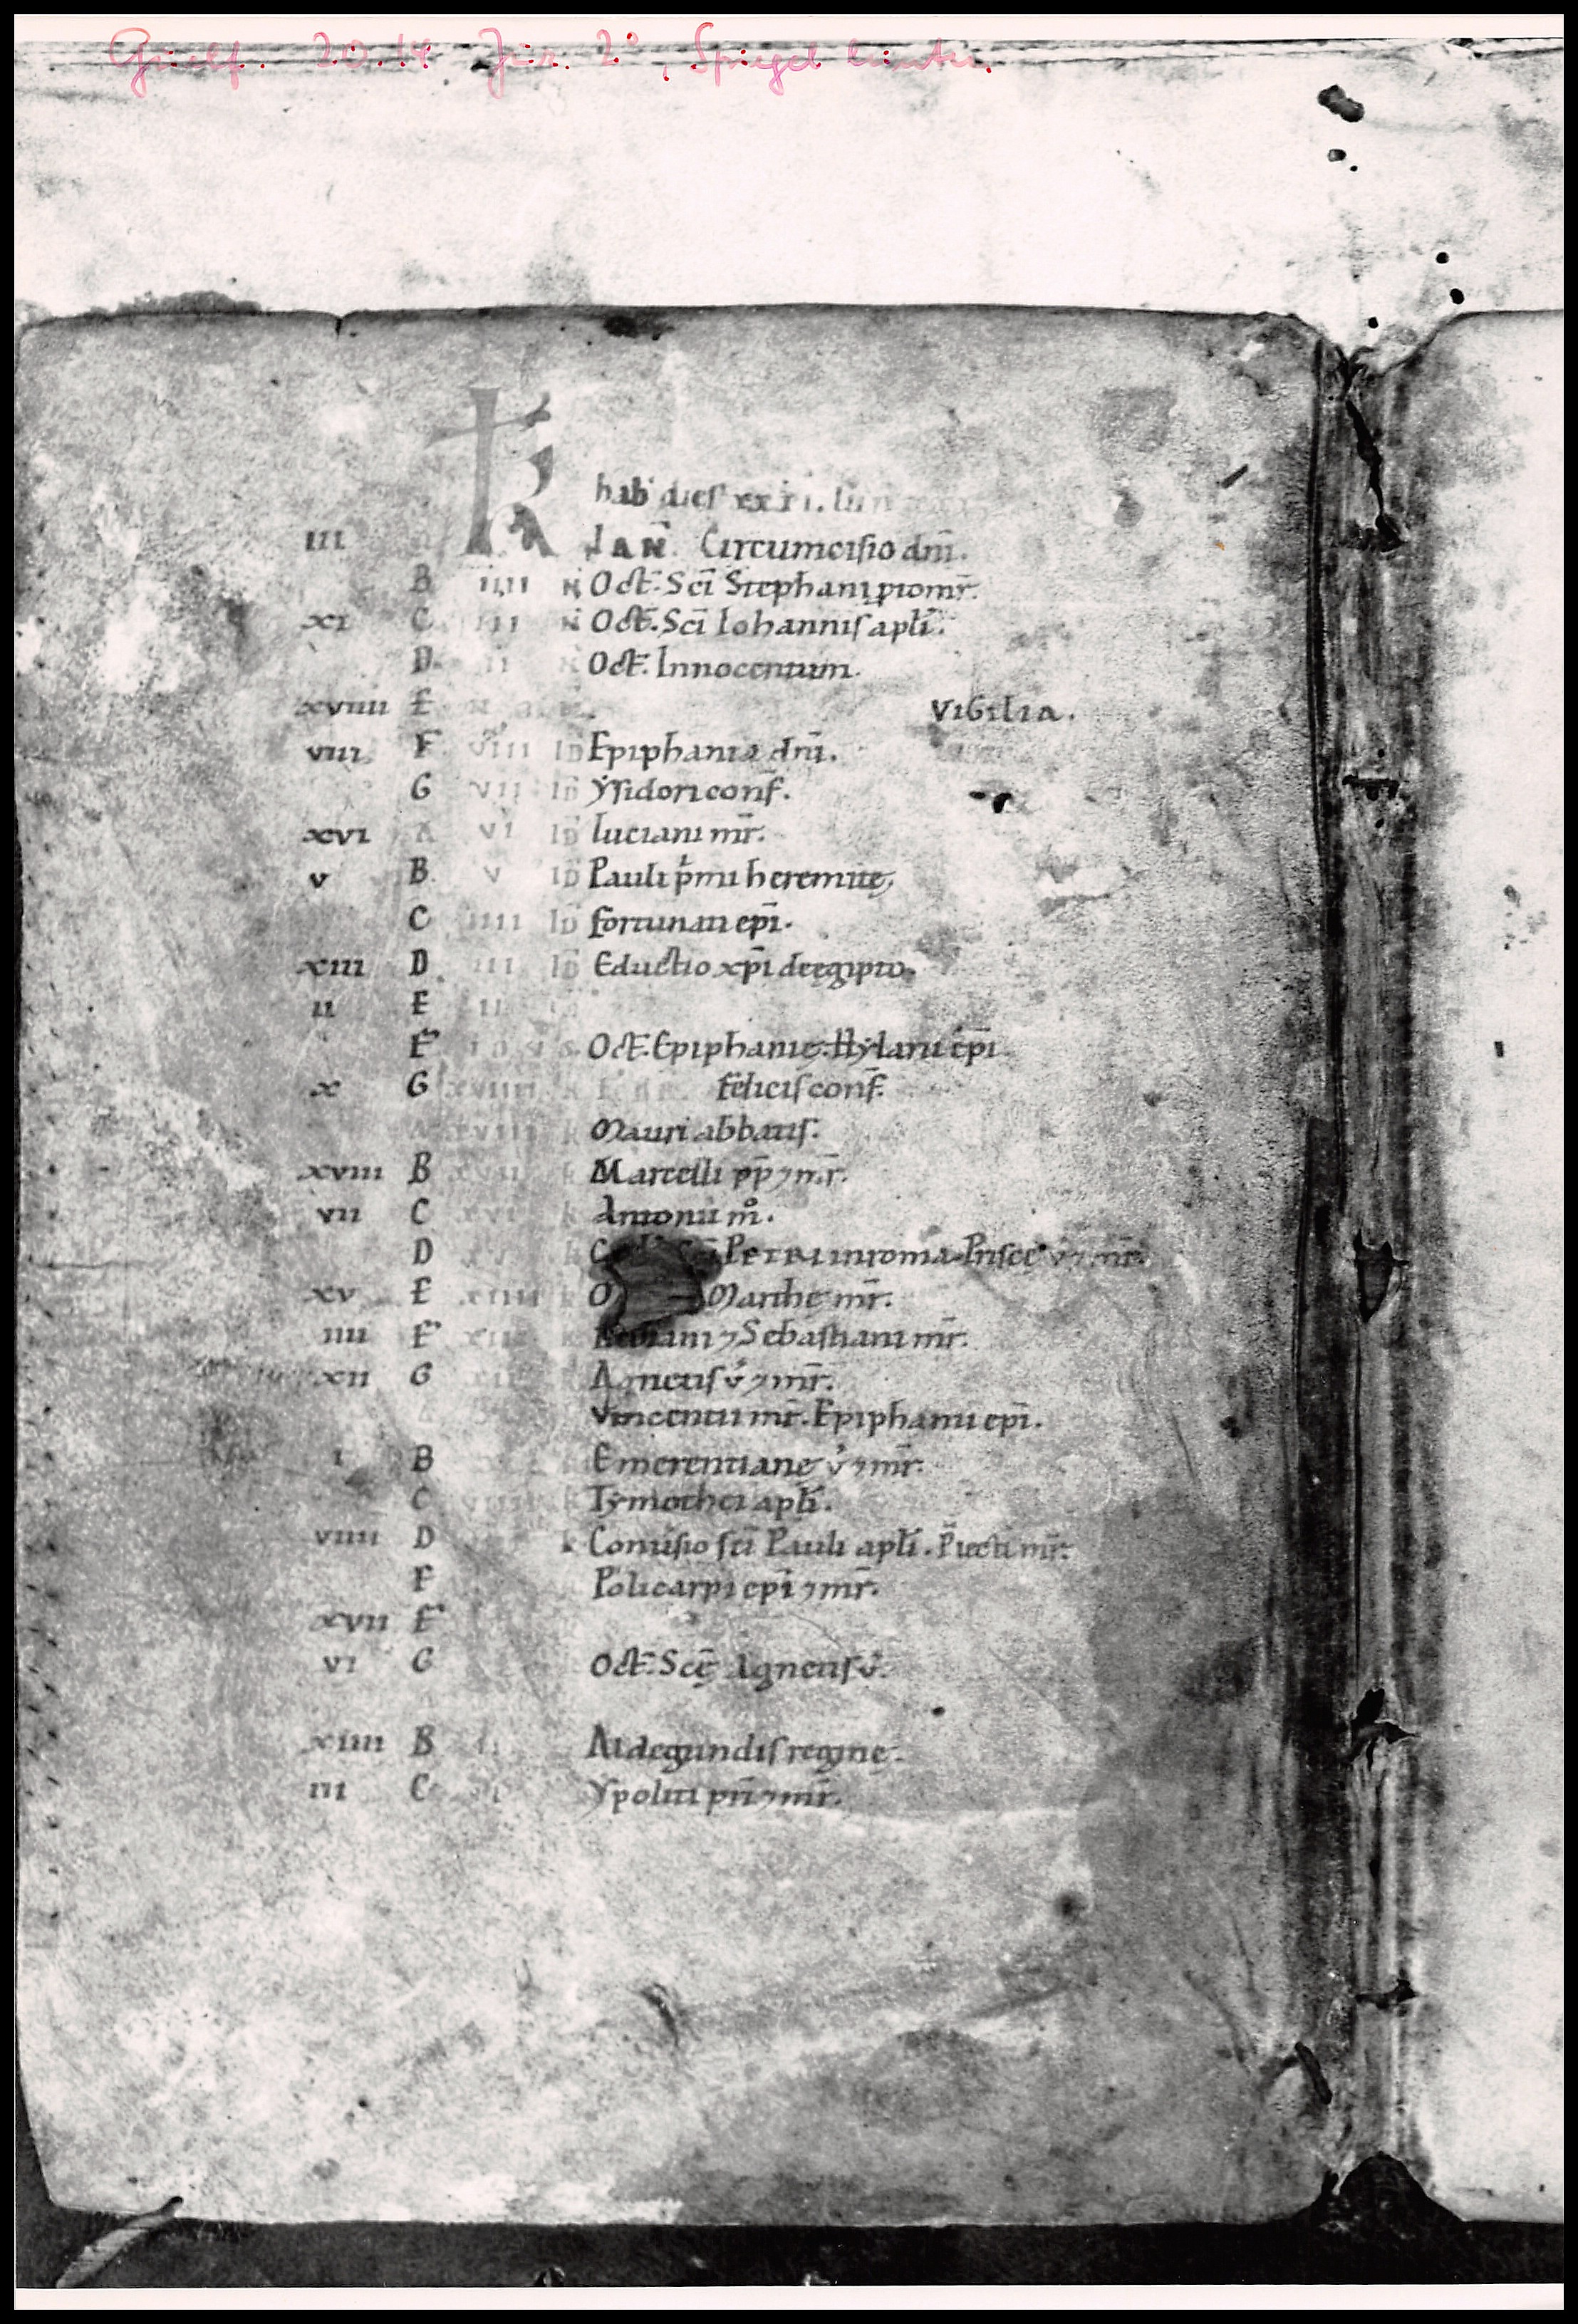 Guelf. 20.14 Jur. 2°, Spiegel hinten
KL
hab' dies xxxi. lun
III IAN̄. Circumcisio dn̄i.
B IIII N Oct̄. Sc̄i Stephani p̱tomr̄.
XI C III N Oct̄. Sc̄i Iohannis apl̄i.
D II N Oct̄. Innocentum.
XVIIII E ViGilia.
VIII F VIII ID Epiphania dn̄i.
G VII ID Ysidori conf̄.
XVI A VI ID luciani mr̄.
V B V ID Pauli p'mi heremitę.
C IIII ID fortunati ep̄i.
XIII D III ID Eductio xp̄i de egipto.
II E II
F Oct̄. Epiphanię. Hylarii ep̄i
X G XVIIII k felicis conf̄.
A XVIII k Mauri abbatis.
XVIII B XVII k Marcelli pp̄ ⁊ mr̄.
VII C XVI k Antonii m̊.
D k PETRI in roma. Prisce v̓ ⁊ mr̄.
XV E XIIII k Marthe mr̄.
IIII F XIII k Fabiani ⁊ Sebastiani mr̄.
XII G XII k Agnetis v̓ ⁊ mr̄.
Vincentii mr̄. Epiphanii ep̄i.
I B Emerentianę v̓ ⁊ mr̄.
C VIIII k Tymothei apl̄i.
VIIII D k Conu̓sio sc̄i Pauli apl̄i. P̄iecti mr̄.
F Policarpi ep̄i ⁊ mr̄.
XVII F
VI G Oct̄. Scę̄ Agnetis v̓.
XIIII B III Aldegundis reginę.
III C II Ypoliti pr̄i ⁊ mr̄.